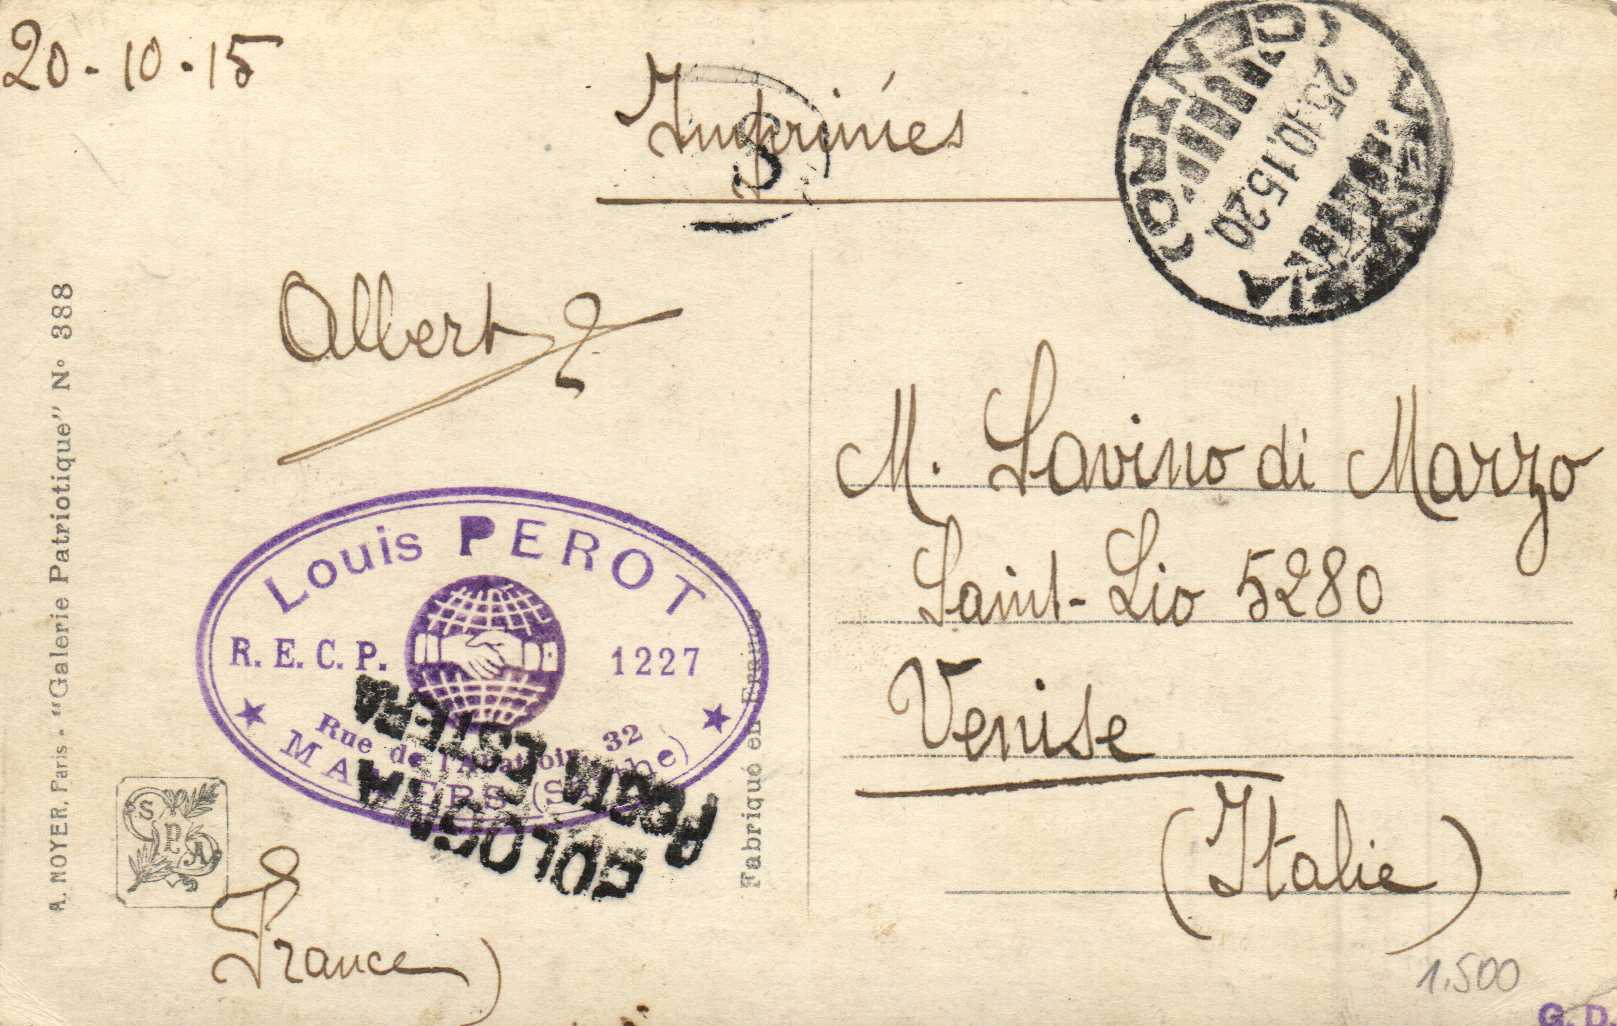 20-10-15
Imprimés
S
VENEZIA
(CENTRO)
25.10.15.20.
Albert
A. NOYER, Paris - "Galerie Patriotique" N° 388
M. Savino di Marzo
Saint-Lio 5280
Venise
(Italie)
Louis PEROT
R. E. C. P. 1227
Rue de l'Abattoir, 32
MAMERS (Sarthe)
BOLOGNA
POSTA ESTERA
Fabriqué en France
SPA
France)
1.500
G. D.